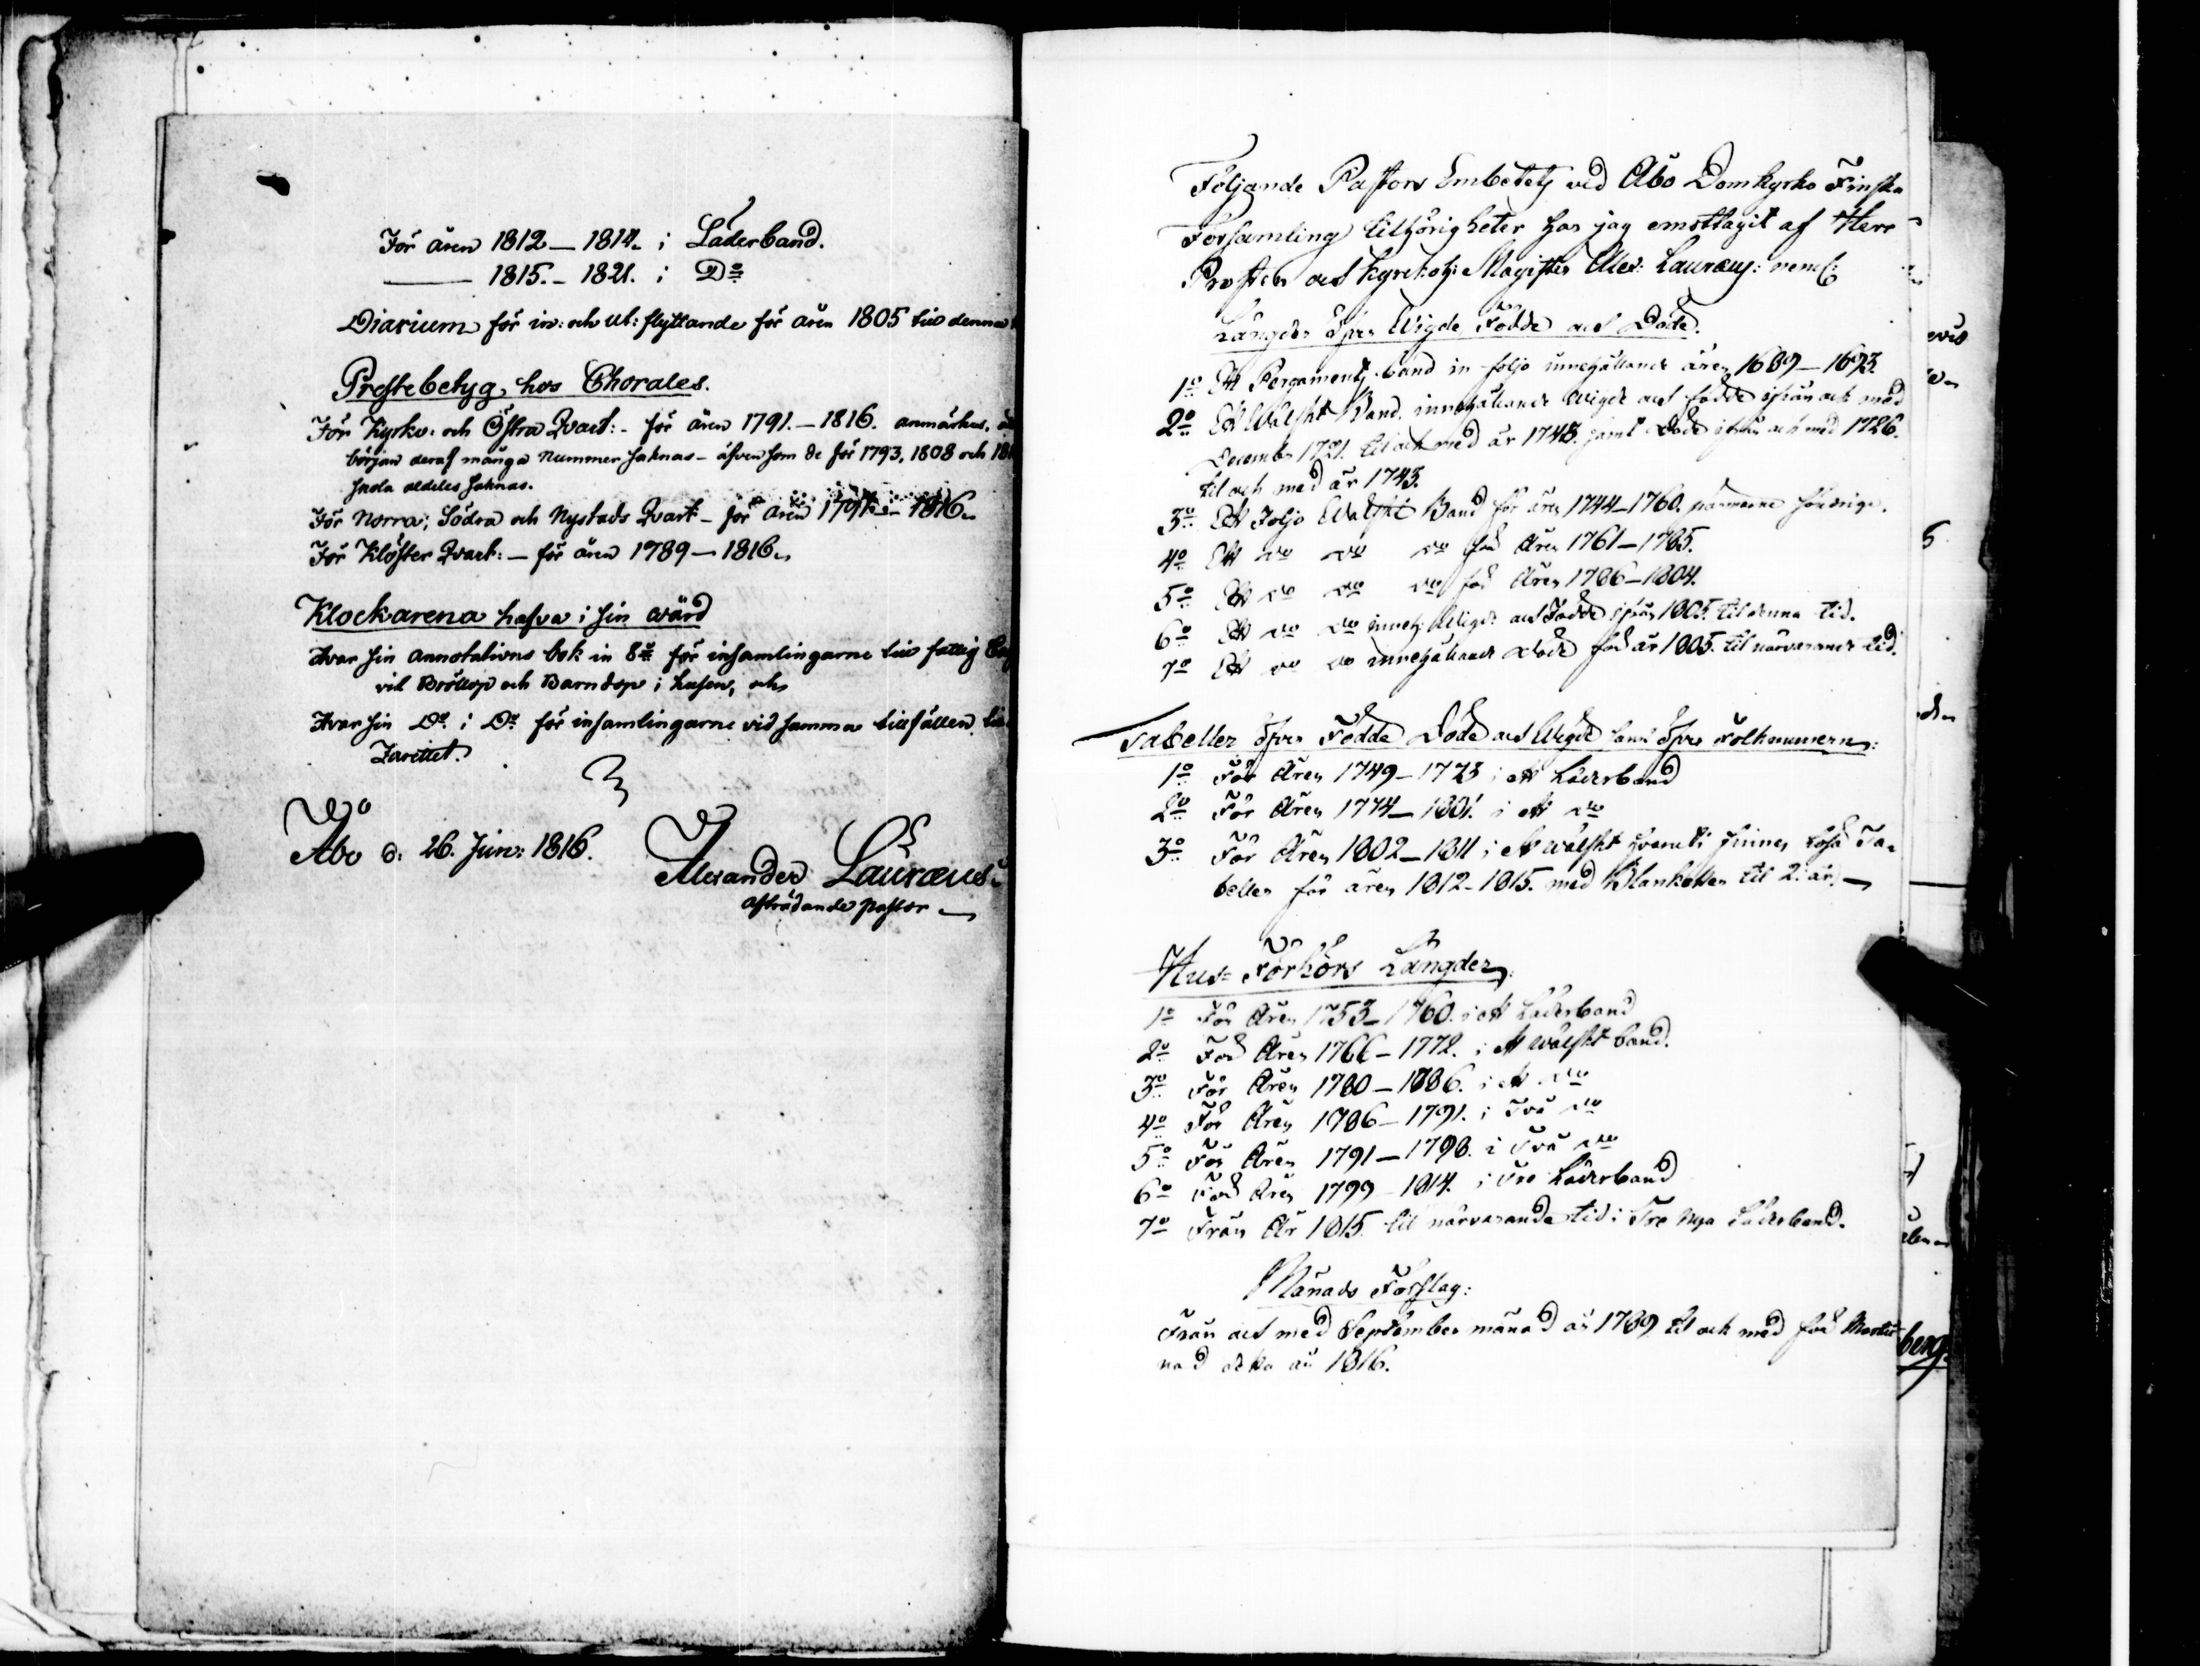 För åren 1812 — 1814. i Läderband.
— 1815. - 1821. i Do
Diarium för in: och ut: flyttande för åren 1805 till denna
Prestebetyg, hos Chorales.
För Kyrko: och Östra Qvart: - för åren 1791. — 1816. anmärkes,
början deraf många Nummer saknas - äfvensom de för 1793, 1808 och
aldeles saknas.
För Norra; Södra och Nystads Qvart - för åren 1791 - 1816.
För Klöster Qvart: - för åren 1789 — 1816.
Klockarena hafva i sin wård
Hvar sin annotations bok in 8o för insamlingarne till fattig
vid Bröllop och Barndop i husen, och
Hvar sin Do i Do för insamlingarne vid samma tillfällen,
Åbo d: 26. Jun: 1816.
Alexander Lauræus.
afträdande pastor
Följande Pastors Embetets vid Åbo Domkyrko Finska
Församling tilhörigheter har jag emottagit af Herr
Prosten och Kyrkoh: Magister Alex: Lauræus: neml:
Längder öfver Wigde Födde och Döde.
1o Ett Pergaments band in folio innehållande åren 1689 — 1693.
2o Ett Wälskt Band. innehållande wigde och födde ifrån och med
December 1721. til och med år 1743. samt Döde ifrån och med 1726.
til och med år 1743.
3o Ett Folio Wälskt Band för åren 1744 - 1760. söndrige.
4o Ett do do do för Åren 1761 — 1785.
5o Ett do do do för Åren 1786 - 1804.
6o Ett do do inneh: Wigde och Födde ifrån 1805. til denna tid.
7o Ett do do innehållande Döde från år 1805. til närvarande tid.
Tabeller öfver Födde Döde och Wigde samt öfver Folknumern:
1o För Åren 1749 - 1773 i ett Läderband
2o För Åren 1774 - 1801. i ett do
3o För Åren 1802 - 1811 i ett wälskt hvaruti finnes lösa Ta-
beller för åren 1812 - 1815. med Blanketter til 2: år.
Hus- Förhörs Längder:
1o För Åren 1753 - 1760. i ett Läderband
2o För Åren 1766 - 1772. i ett wälskt band.
3o För Åren 1780 - 1786. i ett do
4o För Åren 1786 - 1791. i Två do
5o För Åren 1791 - 1798. i Två do
6o För Åren 1799 - 1814. i Tre Läderband
7o Från År 1815. til närvarande tid i Tre nya Läderband.
Månads Förslag:
Från och med September månad år 1789 til och med för
detta år 1816.
berg.